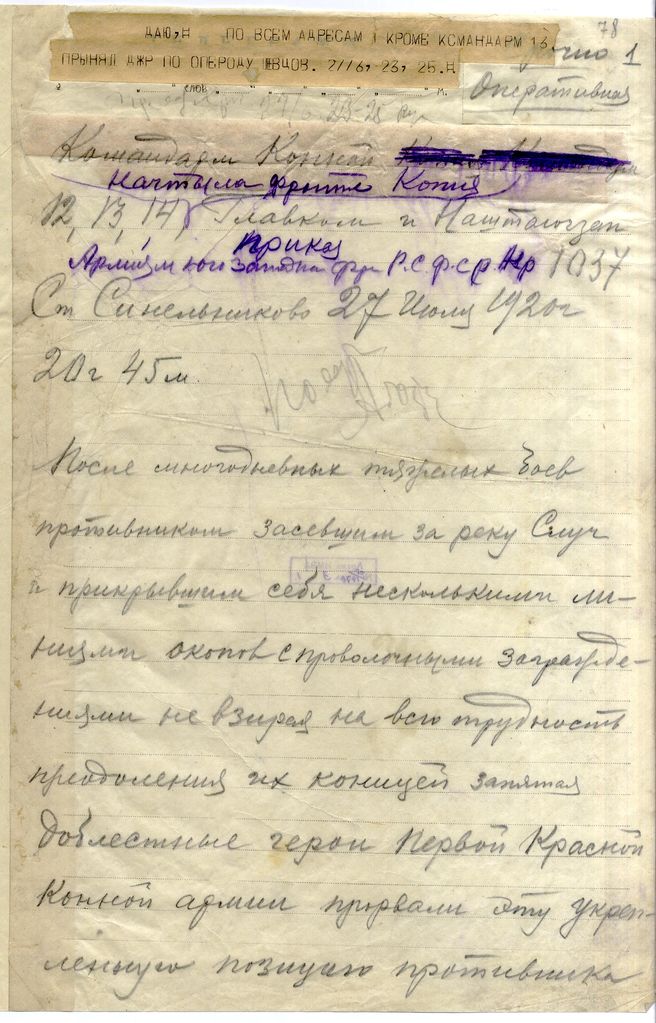 78
ДАЮ,Н ПО ВСЕМ АДРЕСАМ I КРОМЕ КСМАНДАРМ 13
ПРЫНЯЛ ДЖР ПО ОПЕРОДУ ШВЦОВ. 27/6, 23, 25.Н
1
СЛОВ М.
Оперативная
Командарм Конной
Начтыла фронта Копия
12, 13, 14, Главком и Наштаюзап
приказ
Армиям югозападна фр Р.С.Ф.С.Р. Нр 1037
Ст Синельниково 27 Июля 1920г
20г 45м.
После многодневных тяжелых боев
противником засевшим за реку Случ
и прикрывшим себя несколькими ли-
ниями окопов с проволочными загражде-
ниями не взирая на всю трудность
преодоления их конницей запятая
доблестные герои Первой Красной
Конной армии прорвали эту укреп-
леную позицию противника